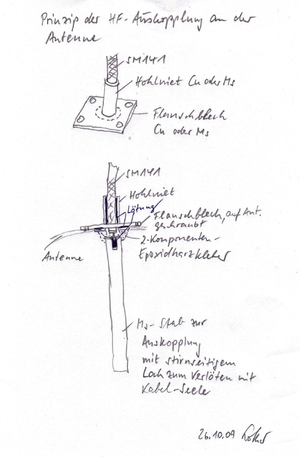 Prinzip der HF-Auskopplung an der
Antenne
SM141
Hohlniet Cu oder Ms
Flanschblech
Cu oder Ms
SM141
Hohlniet
Lötung
Flanschblech, auf Ant.
geschraubt
2-Komponenten-
Epoxidharzkleber
Antenne
Ms-Stab zur
Auskopplung
mit stirnseitigem
Loch zum Verlöten mit
Kabel-Seele
26.10.09